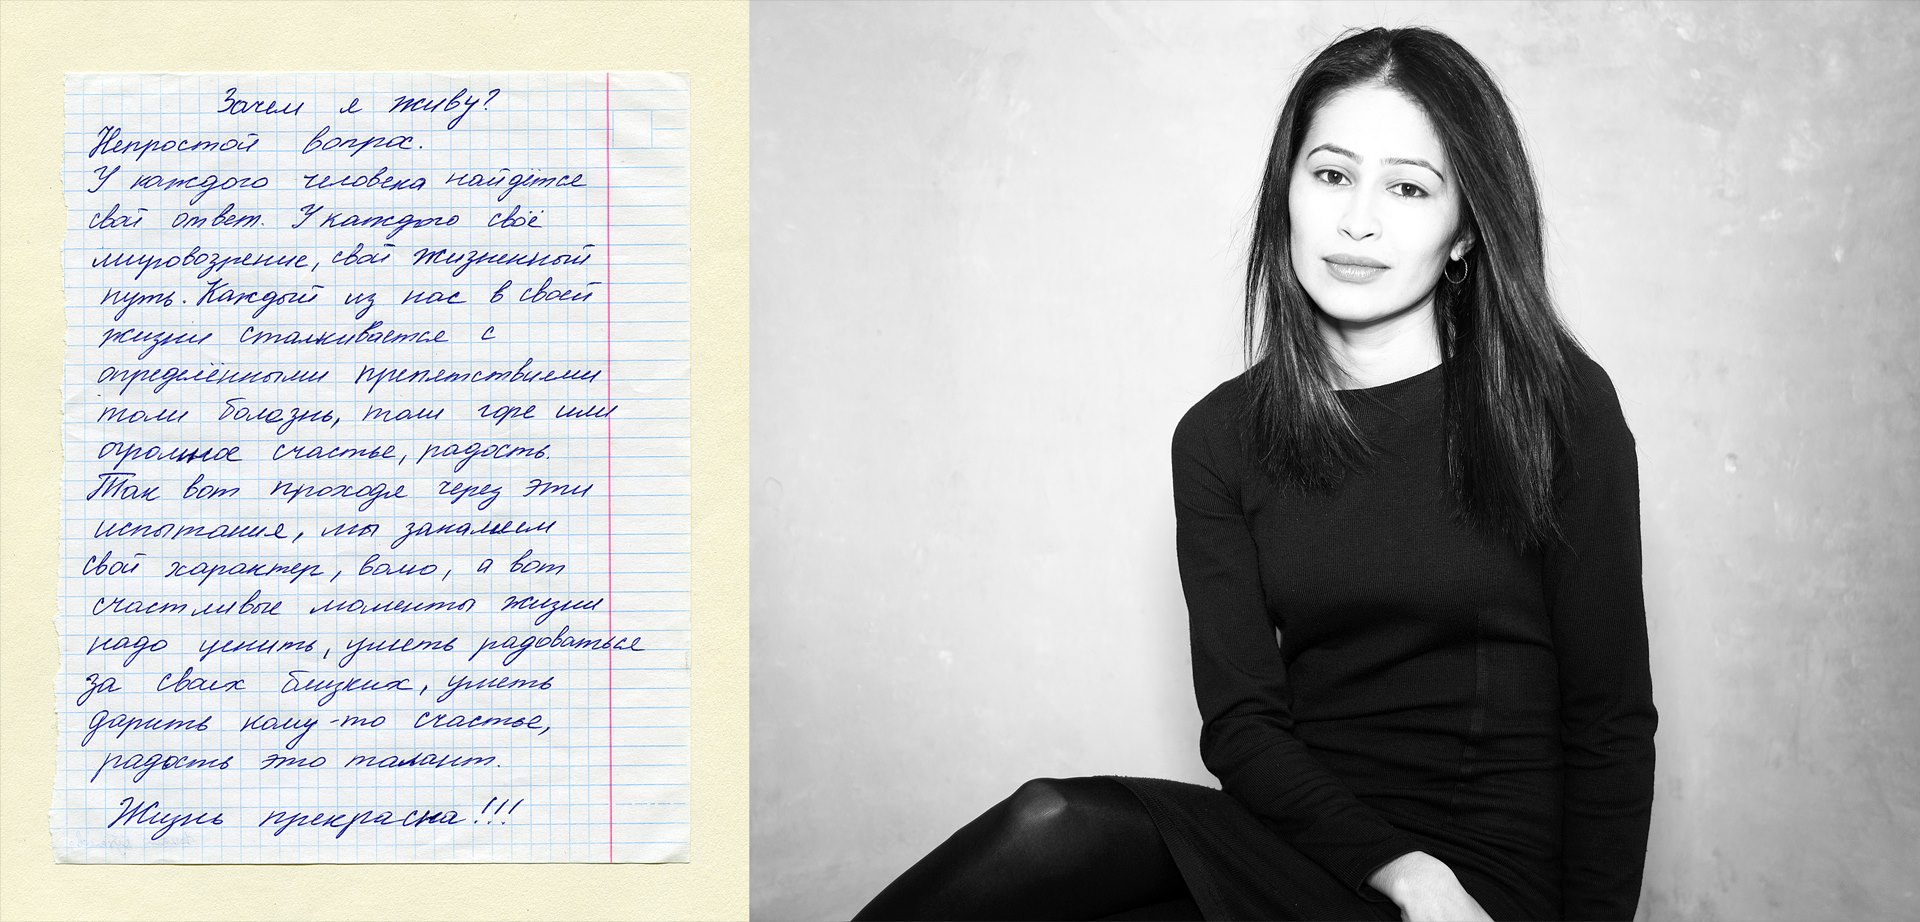 Зачем я живу?
Непростой вопрос.
У каждого человека найдётся
свой ответ. У каждого своё
мировозрение, свой жизненный
путь. Каждый из нас в своей
жизни сталкивается с
определёнными препятствиеми
толи болазнь, толи горе или
огромное счастье, радость.
Так вот проходя через эти
испытания, мы закаляем
свой характер, волю, а вот
счастливые моменты жизни
надо ценить, уметь радоваться
за своих близких, уметь
дарить кому-то счастье,
радость это талант.
Жизнь прекрасна!!!